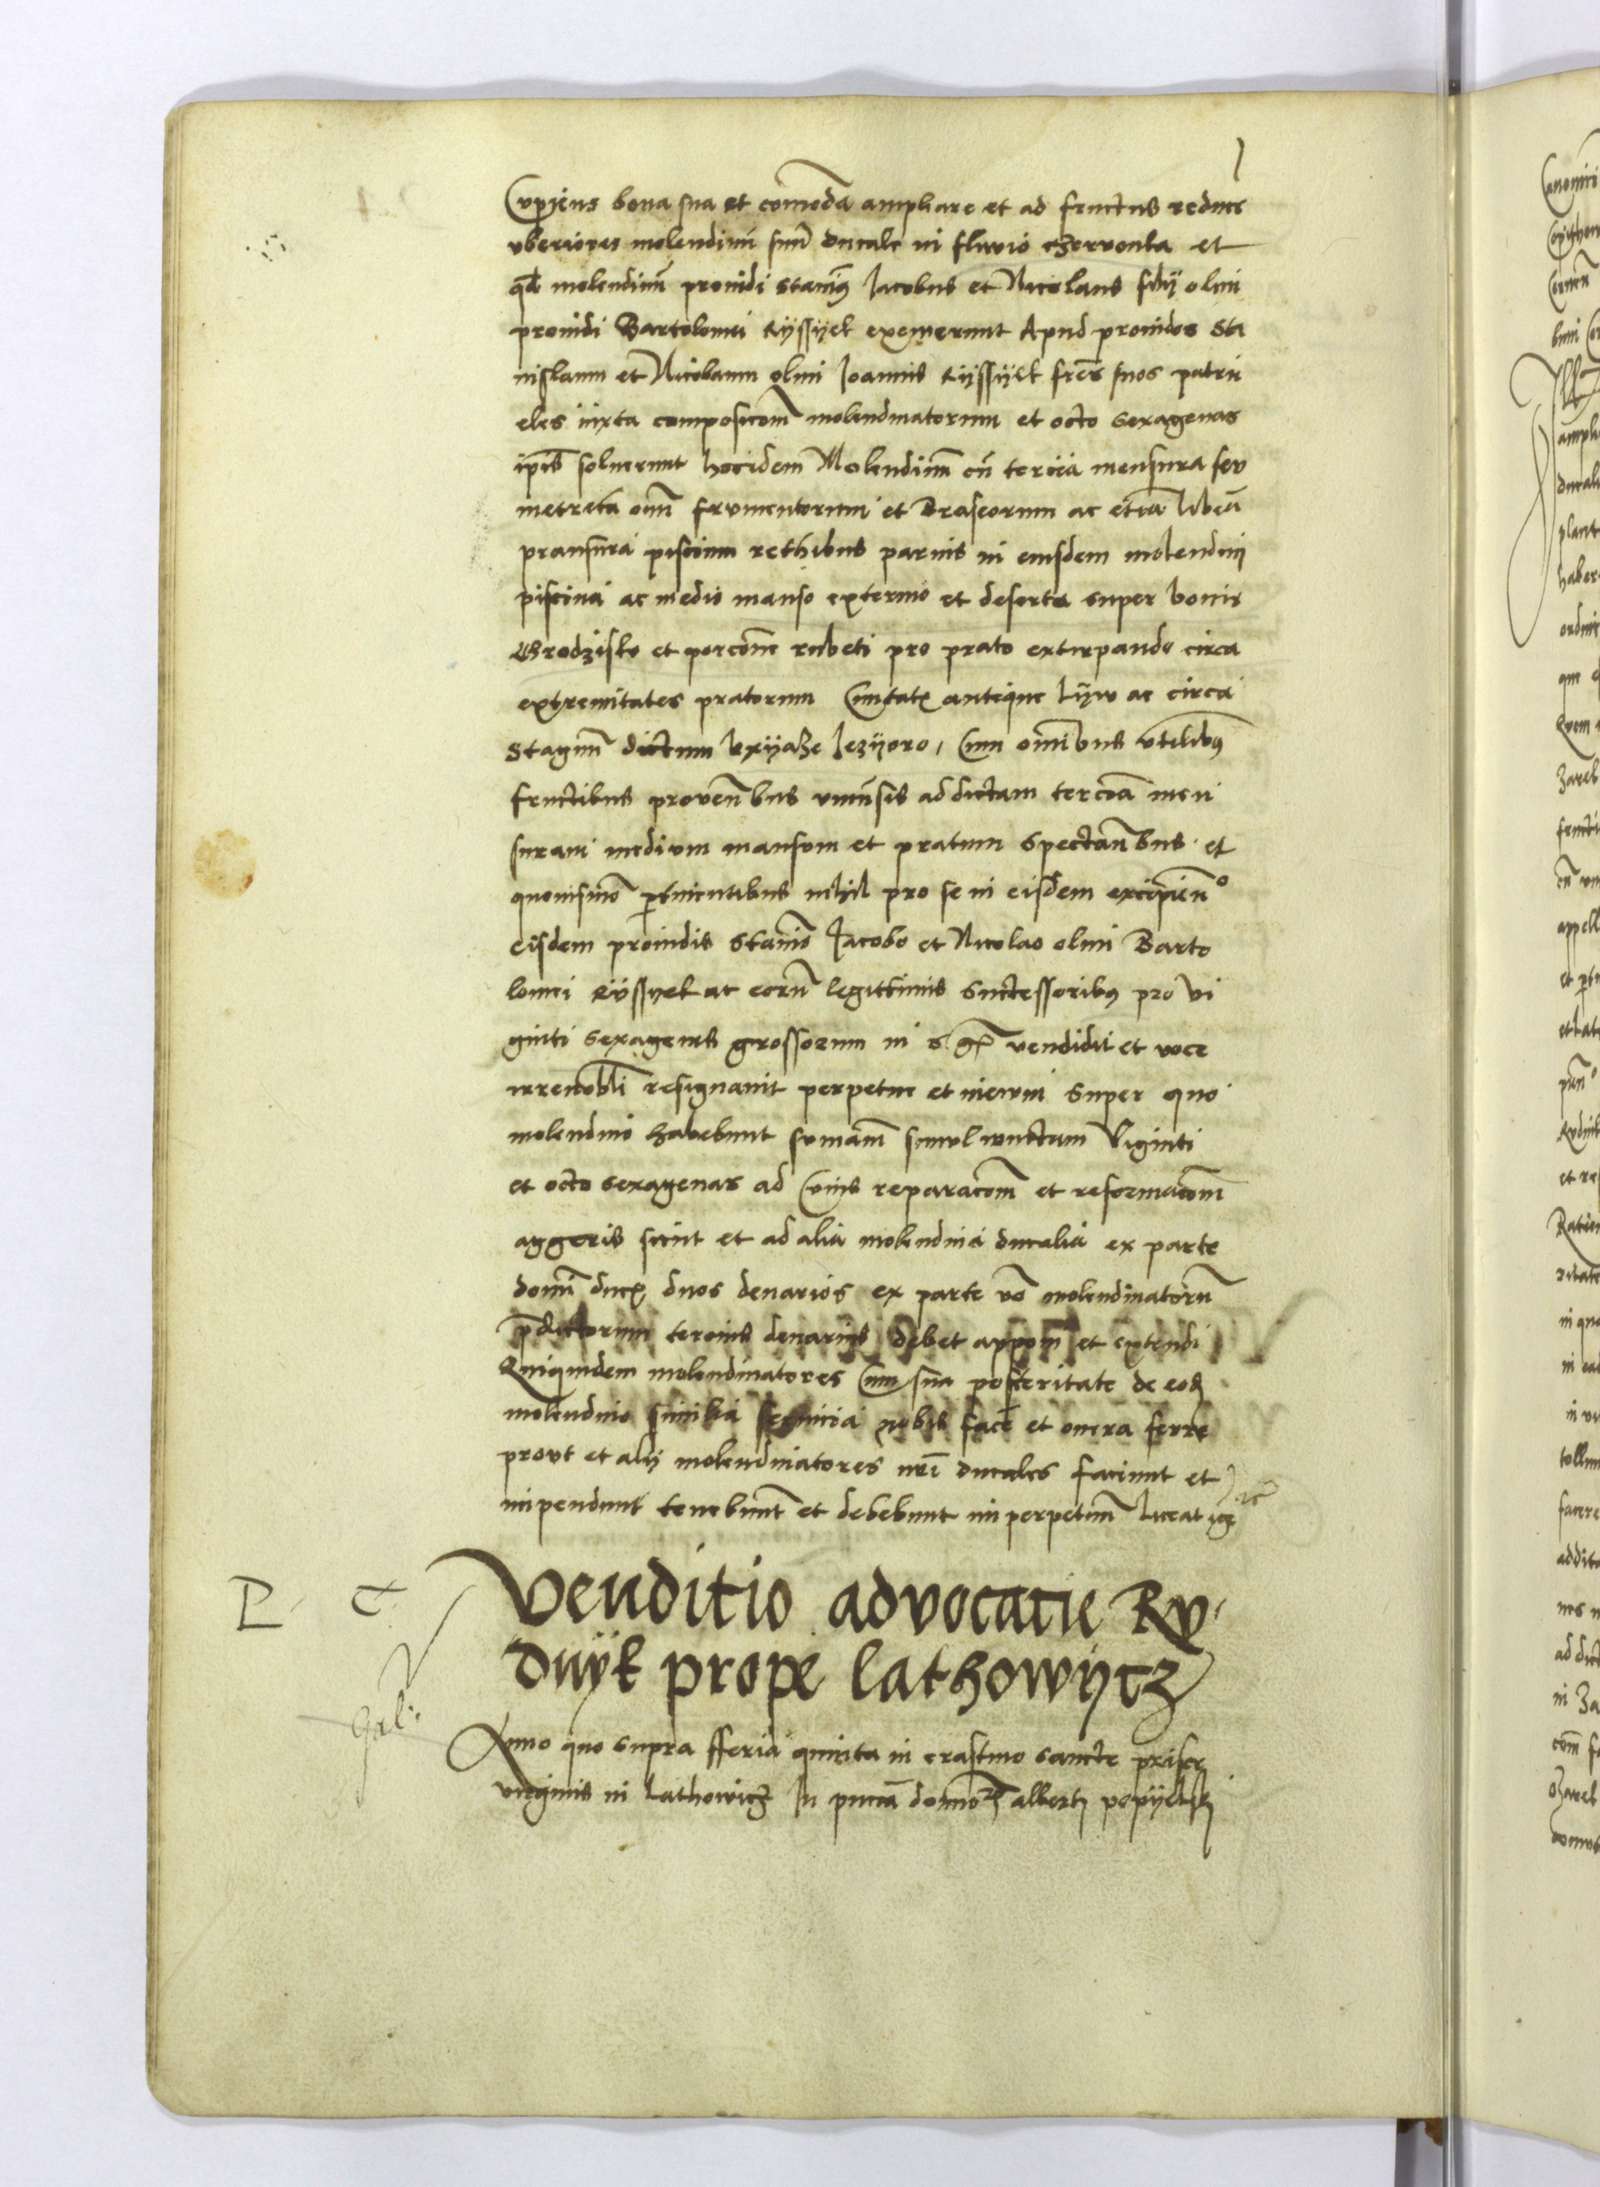 Cupiens bona sua et comoda ampliare et ad fructus reducere
vberiores molendinū suū ducale in fluvio czervonka et
qd molendinū providi Stanisꝰ Jacobus et Nicolaus filij olim
providi Bartolomei Kyssyel exemerunt Apud providos Sta
nislaum et Nicolaum olim Joannis Kyssyel fres suos patru
eles iuxta composicom molendinatorum et octo sexagenas
ipis solverunt hocidem Molendinū cū tercia mensura seu
metreta oim frumentorum et Braseorum ac etiā liberā
piscium rethibus parvis in eiusdem molendini
piscina ac medio manso externo et deserto super bonis
Grodzisko et porcōne rubeti pro prato extirpando circa
extremitates pratorum Civitatis antique Lyw ac circa
Stagnū dictum kxyaze Jezyoro, Cum omibus vtilibꝰ
fructibus provenbus vniūsis ad dictam terciā men
suram medium mansum et pratum spectanbus et
quomōmō ptinentibus nihil pro se in eisdem excipien°
eisdem providis Stanis Jacobo et Nicolao olim Barto
lomei Kyssyel ac eorū legittimis Successoribꝰ pro vi
ginti sexagenis grossorum in s. gr vendidit et voce
irrevobli resignavit perpetue et in evum Super quo
molendino habebunt sumam simul iunctam Viginti
et octo sexagenas ad Cuius reparacom et reformacom
aggeris sicut et ad alia molendina ducalia ex parte
domi ducis duos denarios ex parte vo molendinatorū
pdictorum tercius denarius debet apponi et extendi
Quiquidem molendinatores Cum sua posteritate de eod
molendino similia servicia nobis face et onera ferre
prout et alij molendinatores nri ducales faciunt et
inpendunt tenebunt et debebunt in perpetuū liceat igr
etc
P. C.
Venditio advocatie Ru
dnyk prope lathowycz
Gal:
Anno quo supra fferia quinta in crastino sancte prisce
virginis in Lathowicz In pncia domorū alberti popyelski